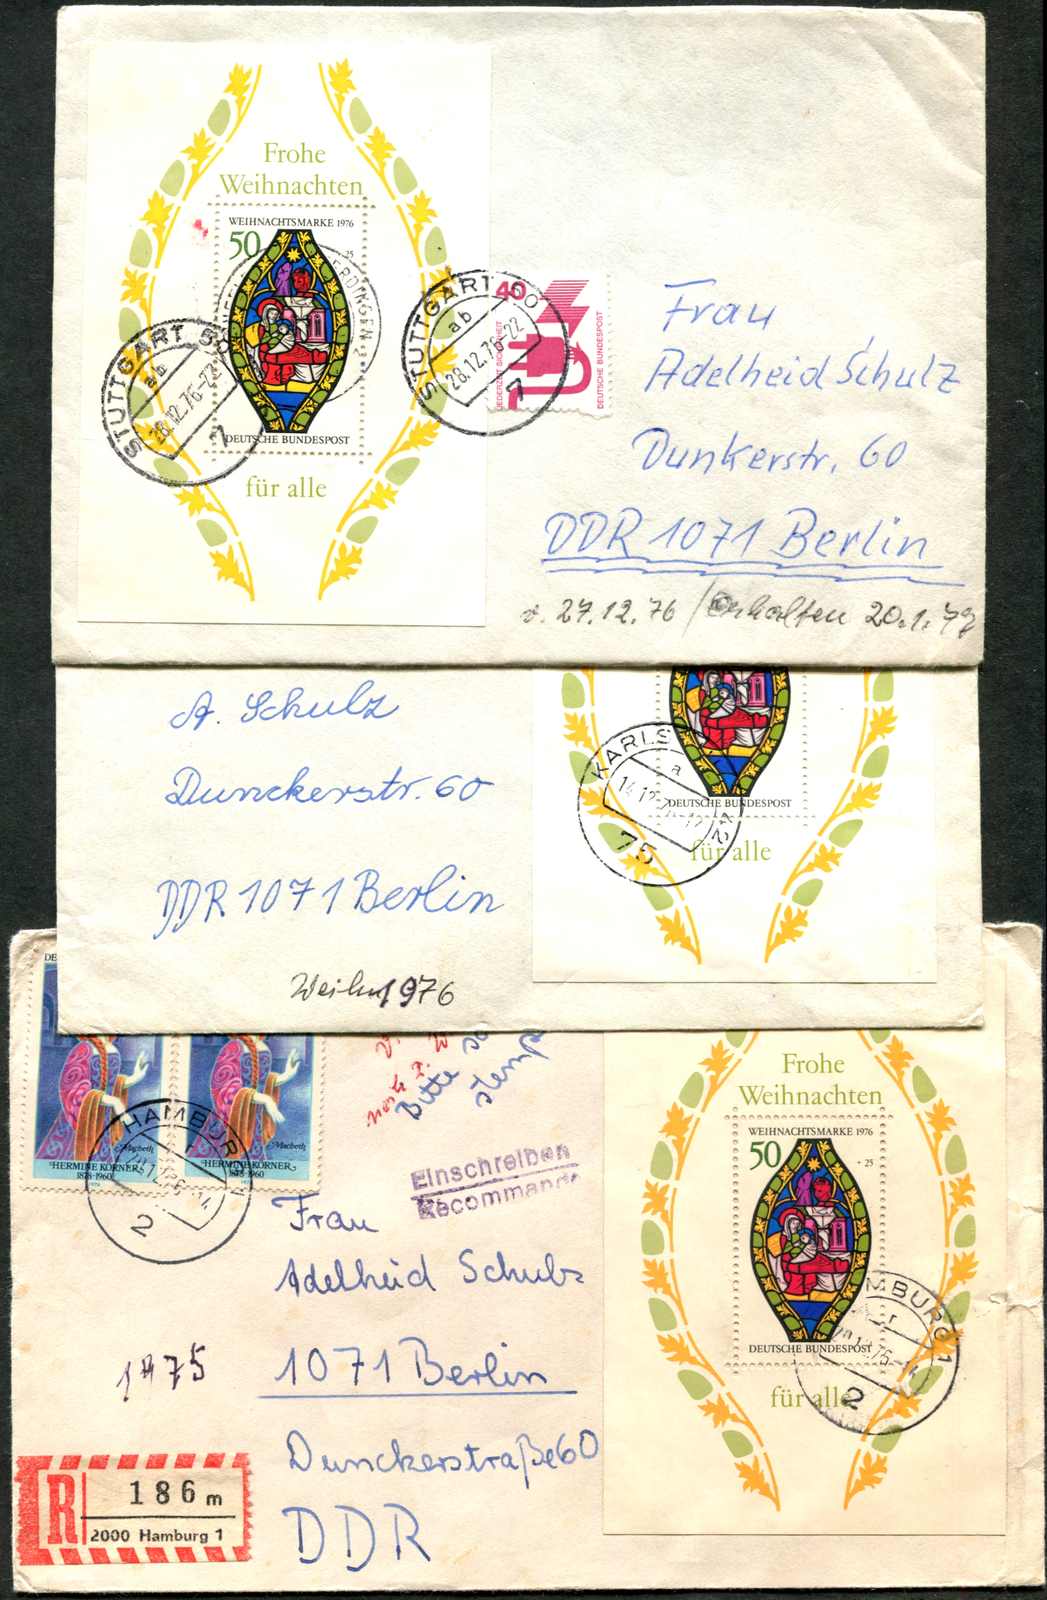 Frohe
Weihnachten
WEIHNACHTSMARKE 1976
50
25
DEUTSCHE BUNDESPOST
für alle
STUTTGART
28.12.76-22
ab
7
STUTTGART
ab
28.12.76-22
7
40
JEDERZEIT SICHERHEIT
DEUTSCHE BUNDESPOST
Frau
Adelheid Schulz
Dunkerstr. 60
DDR 1071 Berlin
27.12.76 / Erhalten 20.1.77
A. Schulz
Dunckerstr. 60
DDR 1071 Berlin
Weihn 1976
DEUTSCHE BUNDESPOST
für alle
a
75
DE
Macbeth
HERMINE KÖRNER
1878-1960
Macbeth
HERMINE KÖRNER
1878-1960
HAMBURG 1
2
Bitte
Einschreiben
Recommandé
Frau
Adelheid Schulz
1071 Berlin
Dunckerstraße 60
DDR
1975
R
186 m
2000 Hamburg 1
Frohe
Weihnachten
WEIHNACHTSMARKE 1976
50
+25
DEUTSCHE BUNDESPOST
für alle
HAMBURG 1
2